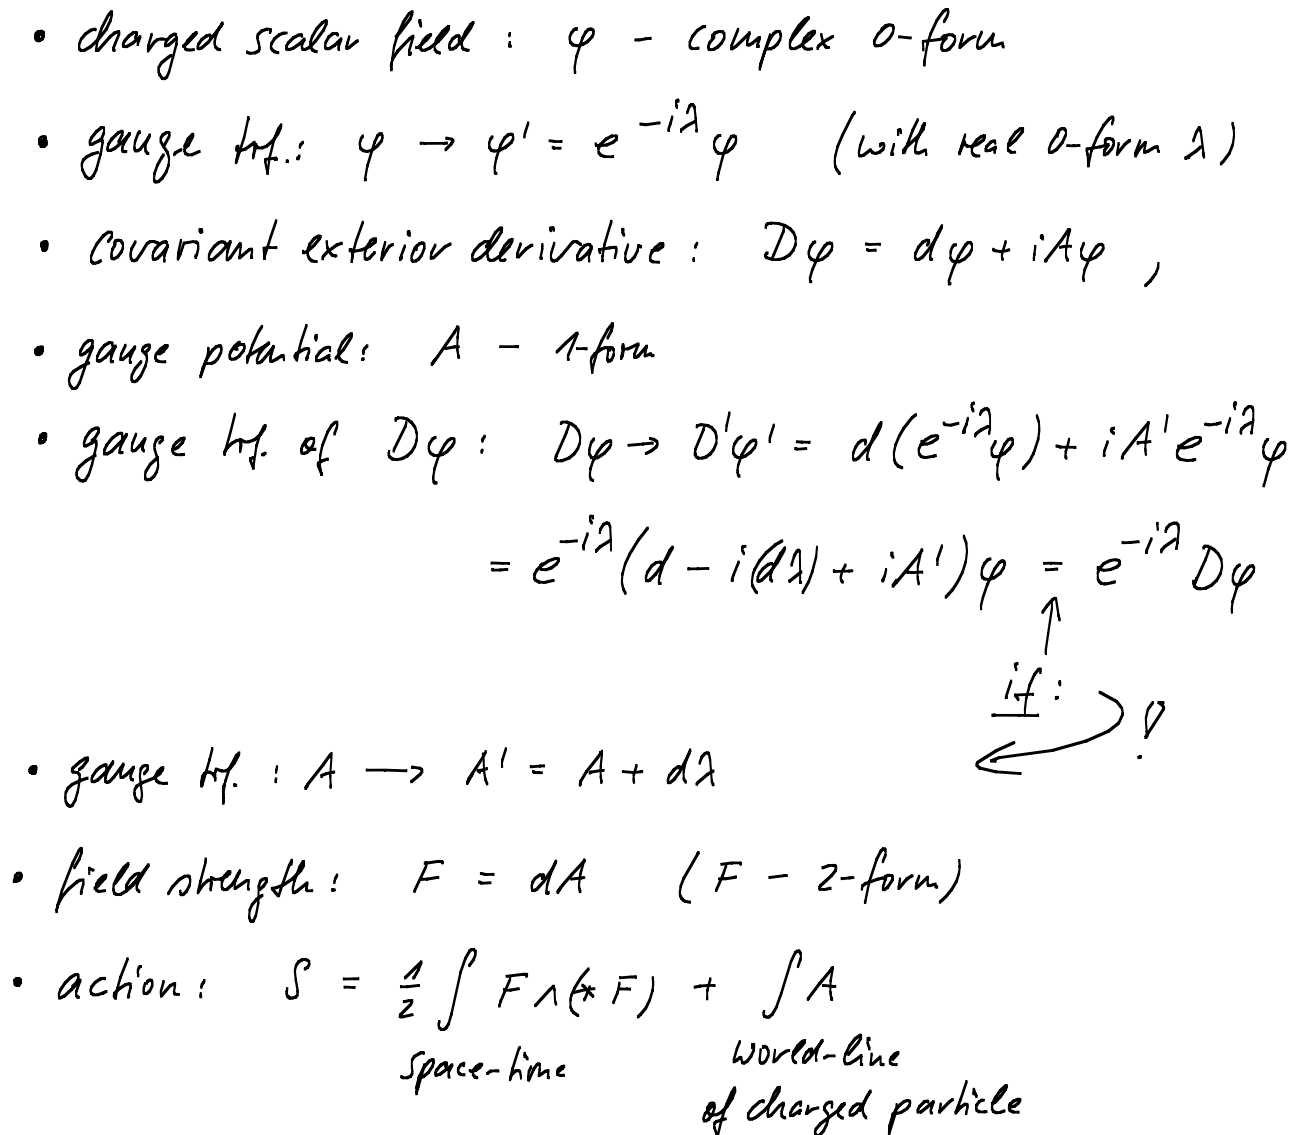 • charged scalar field : φ – complex 0-form
• gauge trf.: φ → φ' = e^{-iλ} φ (with real 0-form λ)
• covariant exterior derivative : Dφ = dφ + iAφ ,
• gauge potential: A – 1-form
• gauge trf. of Dφ : Dφ → D'φ' = d(e^{-iλ}φ) + iA'e^{-iλ}φ
= e^{-iλ}(d - i(dλ) + iA')φ = e^{-iλ} Dφ
↑
if : !
• gauge trf. : A → A' = A + dλ
• field strength: F = dA (F – 2-form)
• action: S = 1/2 ∫ F∧(*F) + ∫ A
space-time world-line
of charged particle